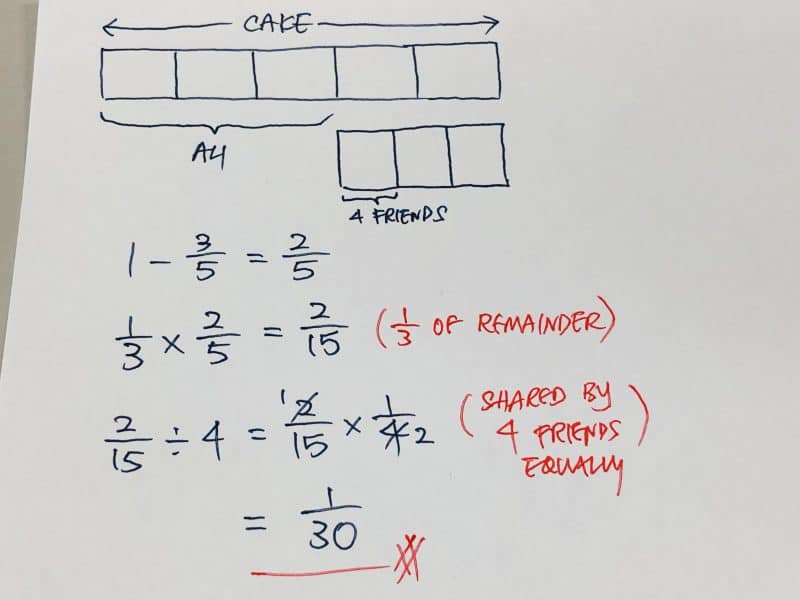 CAKE
A4
4 FRIENDS
1 - 3/5 = 2/5
1/3 × 2/5 = 2/15 (1/3 OF REMAINDER)
2/15 ÷ 4 = 2/15 1 × 1/4 2 (SHARED BY
4 FRIENDS
EQUALLY)
= 1/30